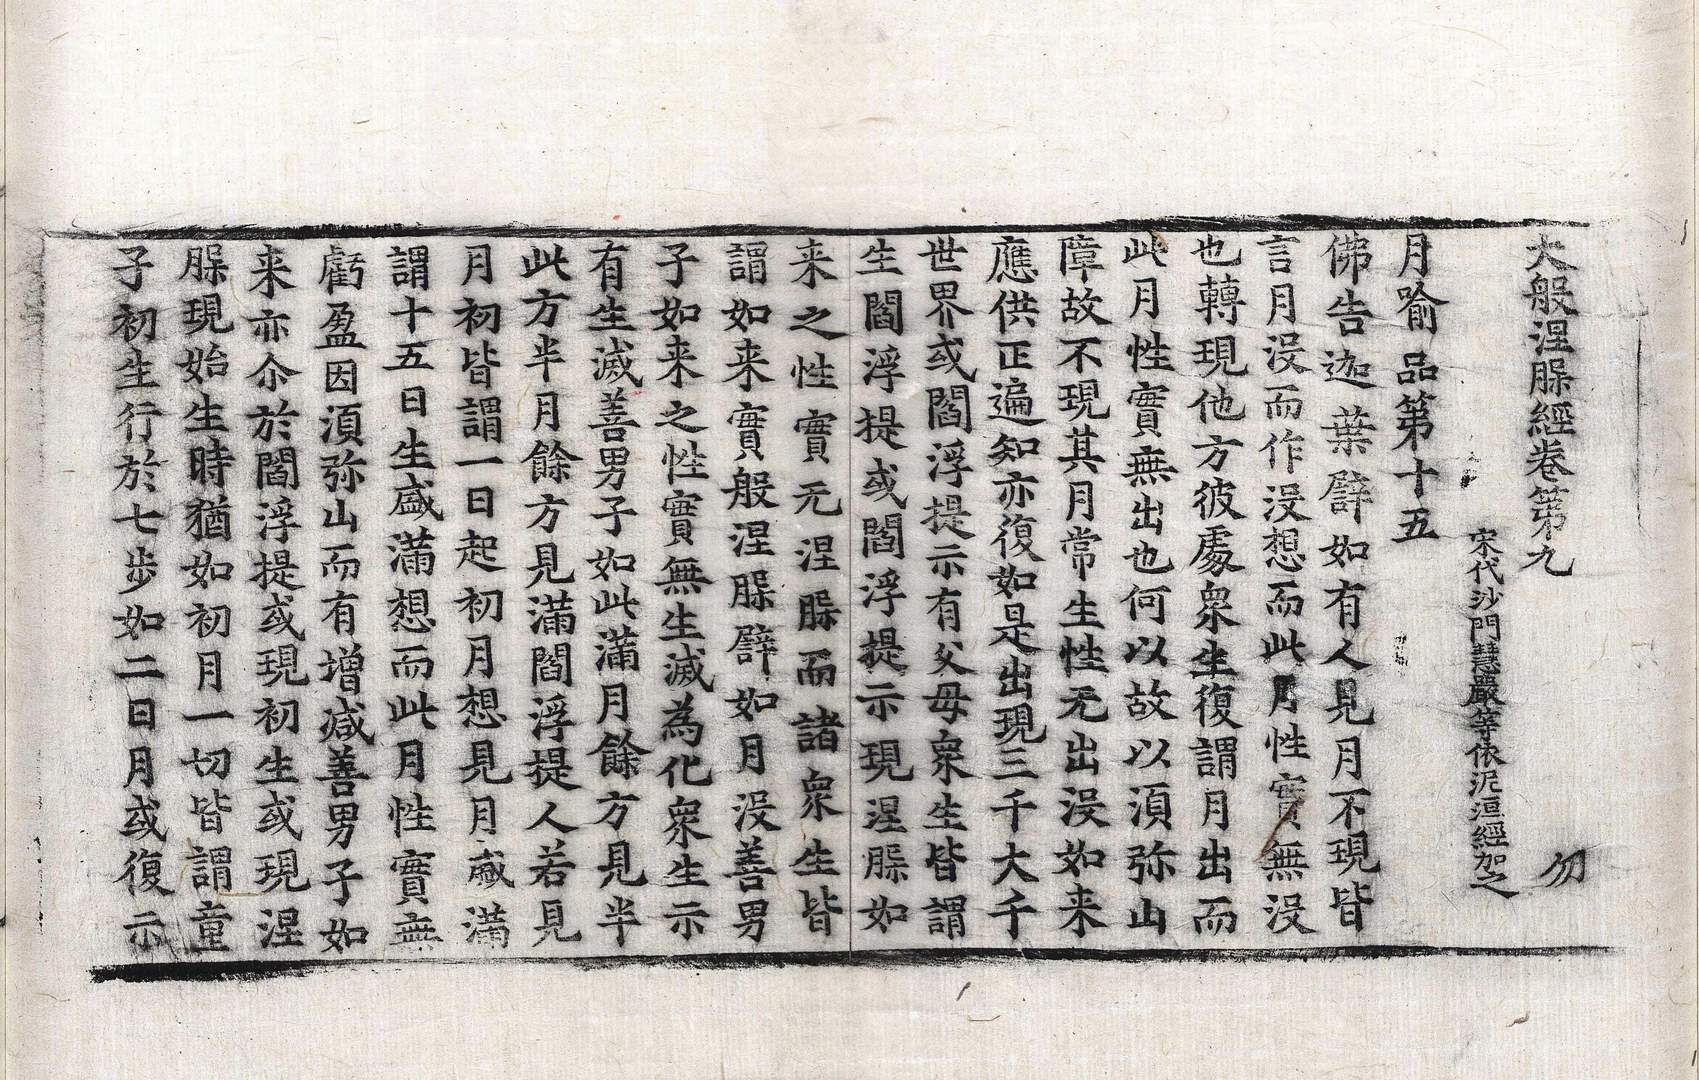 大般涅脲經卷第九 勿
宋代沙門慧嚴等依泥洹經加之
月喻品第十五
佛告迦葉譬如有人見月不現皆
言月沒而作沒想而此月性實無沒
也轉現他方彼處衆生復謂月出而
此月性實無出也何以故以湏弥山
障故不現其月常生性无出沒如来
應供正遍知亦復如是出現三千大千
世界或閻浮提示有父母衆生皆謂
生閻浮提或閻浮提示現涅脲如
来之性實无涅脲而諸衆生皆
謂如来實般涅脲譬如月沒善男
子如来之性實無生滅為化衆生示
有生滅善男子如此滿月餘方見半
此方半月餘方見滿閻浮提人若見
月初皆謂一日起初月想見月盛滿
謂十五日生盛滿想而此月性實無
虧盈因湏弥山而有增减善男子如
来亦尒於閻浮提或現初生或現涅
脲現始生時猶如初月一切皆謂童
子初生行於七步如二日月或復示